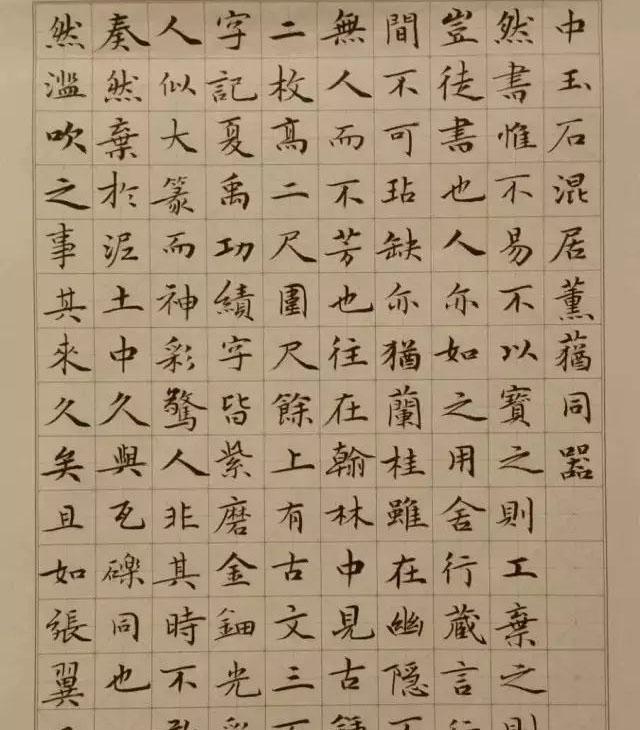 中玉石混居薰蕕同器
然書惟不易不以寶之則工棄之則
豈徒書也人亦如之用舍行藏言行
間不可玷缺亦猶蘭桂雖在幽隱不
無人而不芳也往在翰林中見古鐘
二枚高二尺圍尺餘上有古文三百
字記夏禹功績字皆紫磨金鈿光彩
人似大篆而神彩驚人非其時不敢
奏然棄於泥土中久與瓦礫同也
然濫吹之事其來久矣且如張翼